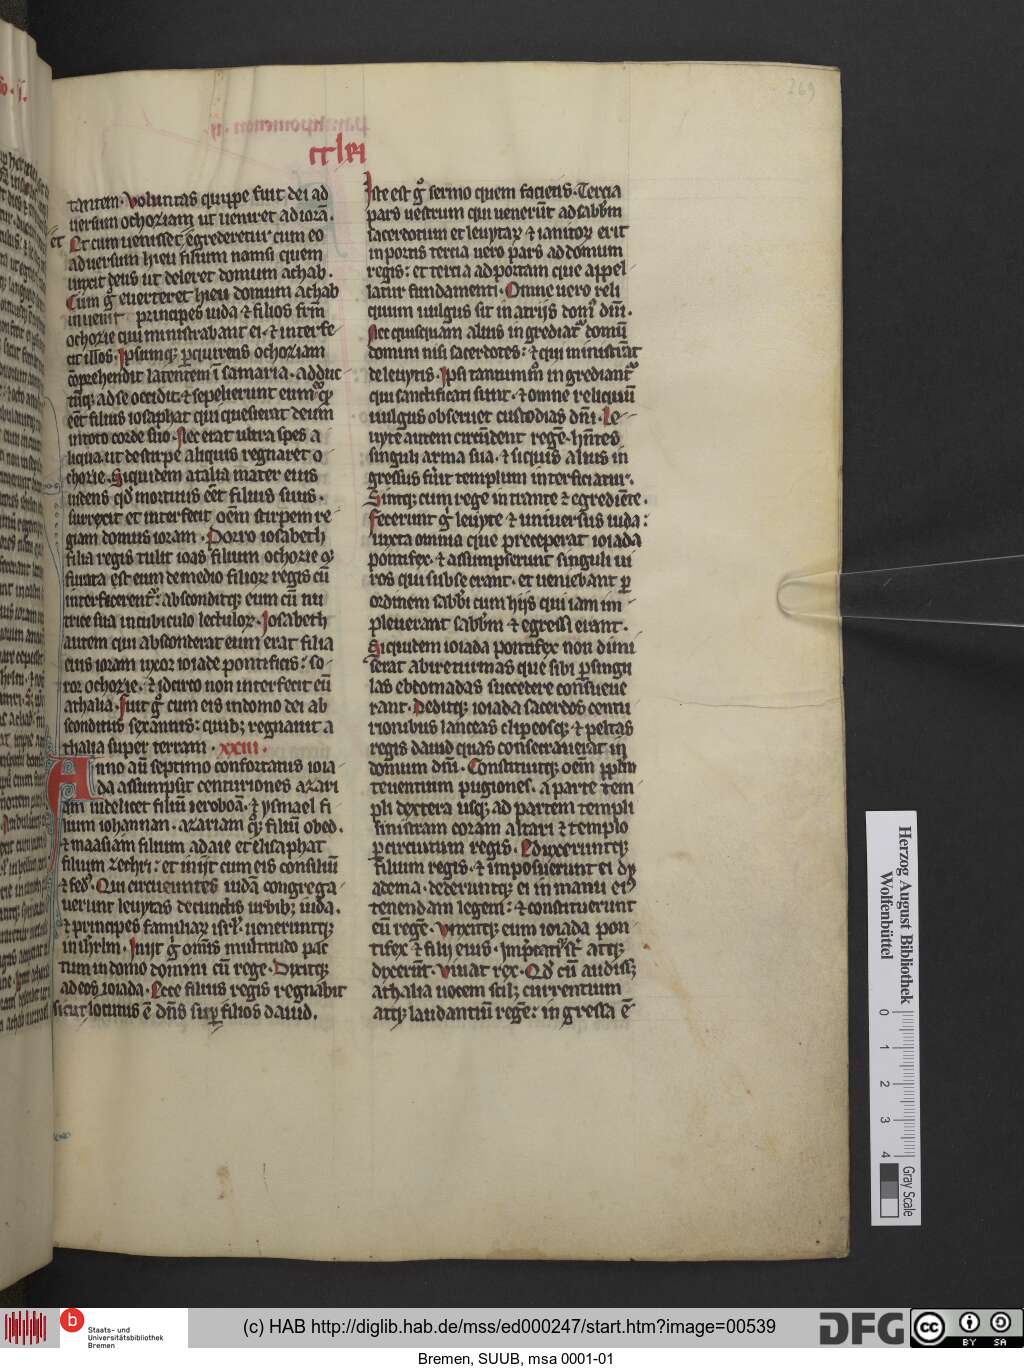 269
cclxi
tantem. Voluntas quippe fuit dei ad
uersum ochoziam ut ueniret ad iorā.
Et cum uenisset et egrederetur cum eo
aduersum hieu filium namsi quem
unxit deus ut deleret domum achab.
Cum gͦ euerteret hieu domum achab
inuenit principes iuda ⁊ filios frm̄
ochozie qui ministrabant ei. ⁊ interfe
cit illos. Ipsumqꝫ ꝑquirens ochoziam
cōprehendit latentem ī samaria. adduc
tūqꝫ ad se occidit. ⁊ sepelierunt eum
eēt filius iosaphat qui quesierat deum
in toto corde suo. Nec erat ultra spes a
liqua. ut de stirpe aliquis regnaret o
chozie. Siquidem atalia mater eius
uidens qd̓ mortuus eēt filius suus.
surrexit et interfecit oēm stirpem re
giam domus ioram. Porro iosabeth
filia regis tulit ioas filium ochozie ⁊
furata est eum de medio filioꝝ regis cū
interficerent᷑. absconditqꝫ eum cū nu
trice sua in cubiculo lectuloꝝ. Iosabeth
autem qui absconderat eum erat filia
eius ioram uxor ioiade pontificis: so
ror ochozie. ⁊ idcirco non interfecit eū
athalia. fuit gͦ cum eis in domo dei ab
sconditus sex annis: quibꝫ regnauit a
thalia super terram. xxiii.
Anno aū septimo confortatus ioia
da assumpsit centuriones azari
am uidelicet filiū ieroboā. ⁊ ysmael fi
lium iohannan. azariam qͦꝫ filiū obed.
⁊ maasiam filium adaie et elisaphat
filium zechri: et iniit cum eis consiliū
⁊ fedꝰ. Qui circueuntes iudā congrega
uerunt leuytas de cunctis urbibꝫ iuda.
⁊ principes familiaꝝ isrl̓. ueneruntqꝫ
in ihrlm̄. Iniit gͦ omīs multitudo pac
tum in domo domini cū rege. Dixitqꝫ
ad eos ioiada. Ecce filius regis regnabit
sicut locutus ē dn̄s suꝑ filios dauid.
Iste est gͦ sermo quem facietis. Tercia
pars uestrum qui uenerūt ad sabbm̄
sacerdotum et leuytaꝝ ⁊ ianitoꝝ erit
in portis tercia uero pars ad domum
regis: et tercia ad portam que appel
latur fundamenti. Omne uero reli
quum uulgus sit in atrijs domꝰ dn̄i.
Nec quisquam alius ingrediat᷑ domū
domini nisi sacerdotes: ⁊ qui ministrāt
de leuytis. Ipsi tantummͦ ingrediant᷑
qui sanctificati sunt. ⁊ omne reliquū
uulgus obseruet custodias dn̄i. Le
uyte autem circūdent regē. hn̄tes
singuli arma sua. ⁊ siquis alius in
gressus fuīt templum interficiatur.
Sintqꝫ cum rege intrante ⁊ egrediēte.
fecerunt gͦ leuyte ⁊ uniuersus iuda:
iuxta omnia que preceperat ioiada
pontifex. ⁊ assumpserunt singuli ui
ros qui sub se erant. et ueniebant ꝑ
ordinem sabbi cum hijs qui iam im
pleuerant sabbm̄ ⁊ egressi erant.
Siquidem ioiada pontifex non dimi
serat abire turmas que sibi ꝑ singu
las ebdomadas succedere consueue
rant. Deditqꝫ ioiada sacerdos centu
rionibus lanceas clipeosqꝫ ⁊ peltas
regis dauid quas consecrauerat in
domum dn̄i. Constituitqꝫ oēm ppl̄m
tenentium pugiones. a parte tem
pli dextera usqꝫ ad partem templi
sinistram coram altari ⁊ templo
ꝑ circuitum regis. Eduxeruntqꝫ
filium regis. ⁊ imposuerunt ei dy
adema. dederuntqꝫ ei in manu eiꝰ
tenendam legem: ⁊ constituerunt
eū regē. Vnxitqꝫ eum ioiada pon
tifex ⁊ filij eius. atqꝫ
dixerūt. viuat rex. Qd̓ cū audissꝫ
athalia uocem scilꝫ currentium
atqꝫ laudantiū regē: ingressa ē
Herzog August Bibliothek
Wolfenbüttel
0 1 2 3 4
Gray Scale
b
Staats- und
Universitätsbibliothek
Bremen
(c) HAB http://diglib.hab.de/mss/ed000247/start.htm?image=00539
DFG
cc
BY SA
Bremen, SUUB, msa 0001-01